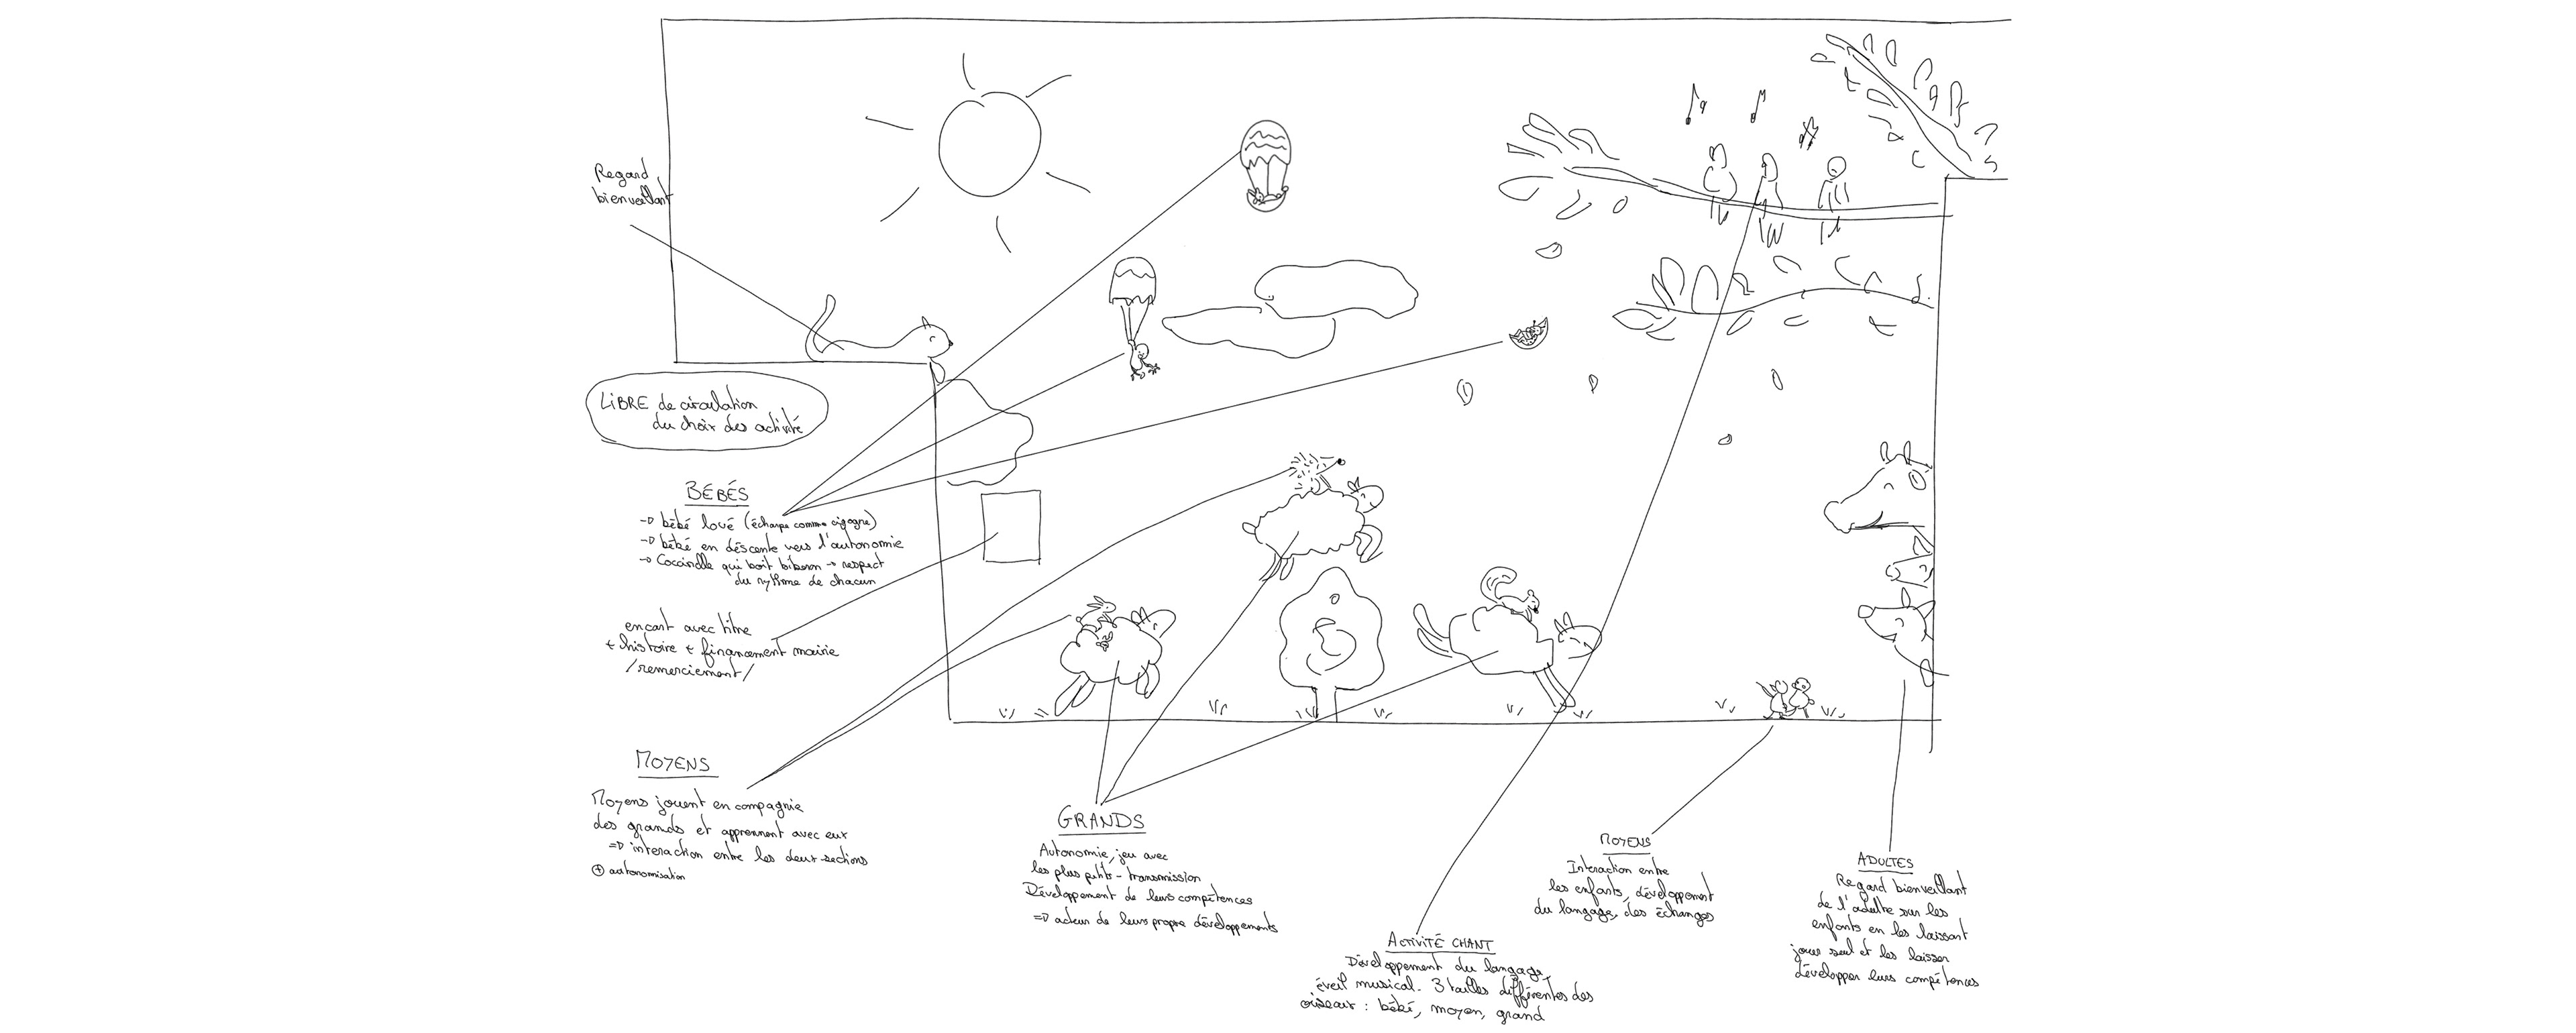 Regard
bienveillant
LIBRE de circulation
du choix des activité
BÉBÉS
-> bébé lové (écharpe comme cigogne)
-> bébé en déscente vers l'autonomie
-> Coccinelle qui boit biberon -> respect
du rythme de chacun
encart avec titre
+ histoire + financement mairie
/remerciement/
MOYENS
Moyens jouent en compagnie
des grands et apprennent avec eux
=> interaction entre les deux sections
⊕ autonomisation
GRANDS
Autonomie, jeu avec
les plus petits - transmission
Développement de leurs compétences
=> acteur de leurs propre développements
ACTIVITÉ CHANT
Développement du langage,
éveil musical. 3 tailles différentes des
oiseaux : bébé, moyen, grand
MOYENS
Interaction entre
les enfants, développement
du langage, des échanges
ADULTES
Regard bienveillant
de l'adulte sur les
enfants en les laissant
jouer seul et les laisser
développer leurs compétences